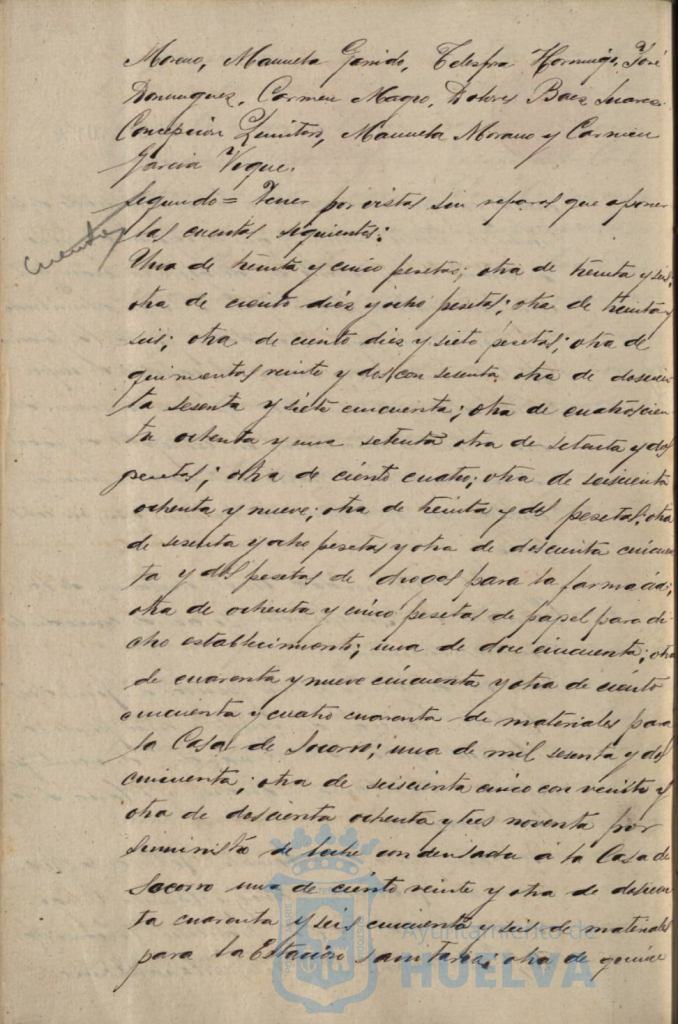 Moreno, Manuela Garrido, Telesfra Hormigo, José
Dominguez, Carmen Magro, Dolores Baez Suarez
Concepción Quintero, Manuela Morano y Carmen
Garcia Voque.
Segundo = Tener por vistas sin reparos que oponer
las cuentas siguientes:
Cuentas
Una de treinta y cinco pesetas; otra de treinta y seis;
otra de ciento diez y ocho pesetas; otra de treinta y
seis; otra de ciento diez y siete pesetas; otra de
quinientas veinte y dos con sesenta otra de doscien
ta sesenta y siete cincuenta; otra de cuatroscien
ta ochenta y una setenta otra de setenta y dos
pesetas; otra de ciento cuatro; otra de seiscienta
ochenta y nueve; otra de treinta y dos pesetas; otra
de sesenta y ocho pesetas y otra de doscienta cincuen
ta y dos pesetas de drogas para la farmacia;
otra de ochenta y cinco pesetas de papel para di
cho establecimiento; una de doce cincuenta; otra
de cuarenta y nueve cincuenta y otra de ciento
cincuenta y cuatro cuarenta de materiales para
la Casa de Socorro; una de mil sesenta y dos
cincuenta; otra de seiscienta cinco con veinte y
otra de doscienta ochenta y tres noventa por
suministro de leche condensada á la Casa de
Socorro una de ciento veinte y otra de doscien
ta cuarenta y seis cincuenta y seis de materiales
para la Estación sanitaria; otra de quince
Ayuntamiento de
HUELVA